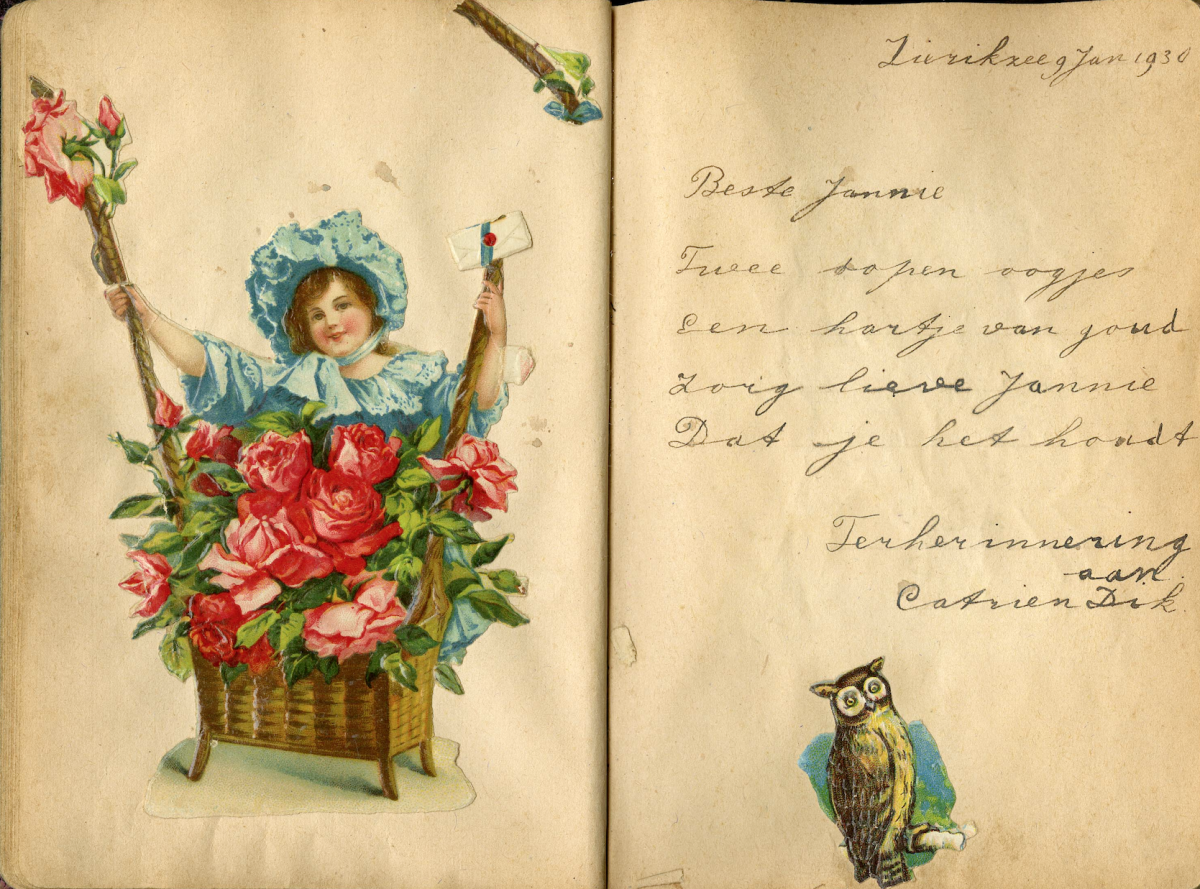 Zierikzee 9 Jan 1930
Beste Jannie
Twee dopen oogjes
Een hartje van goud
Zorg lieve Jannie
Dat je het houdt
Terherinnering
aan
Catrien Dik